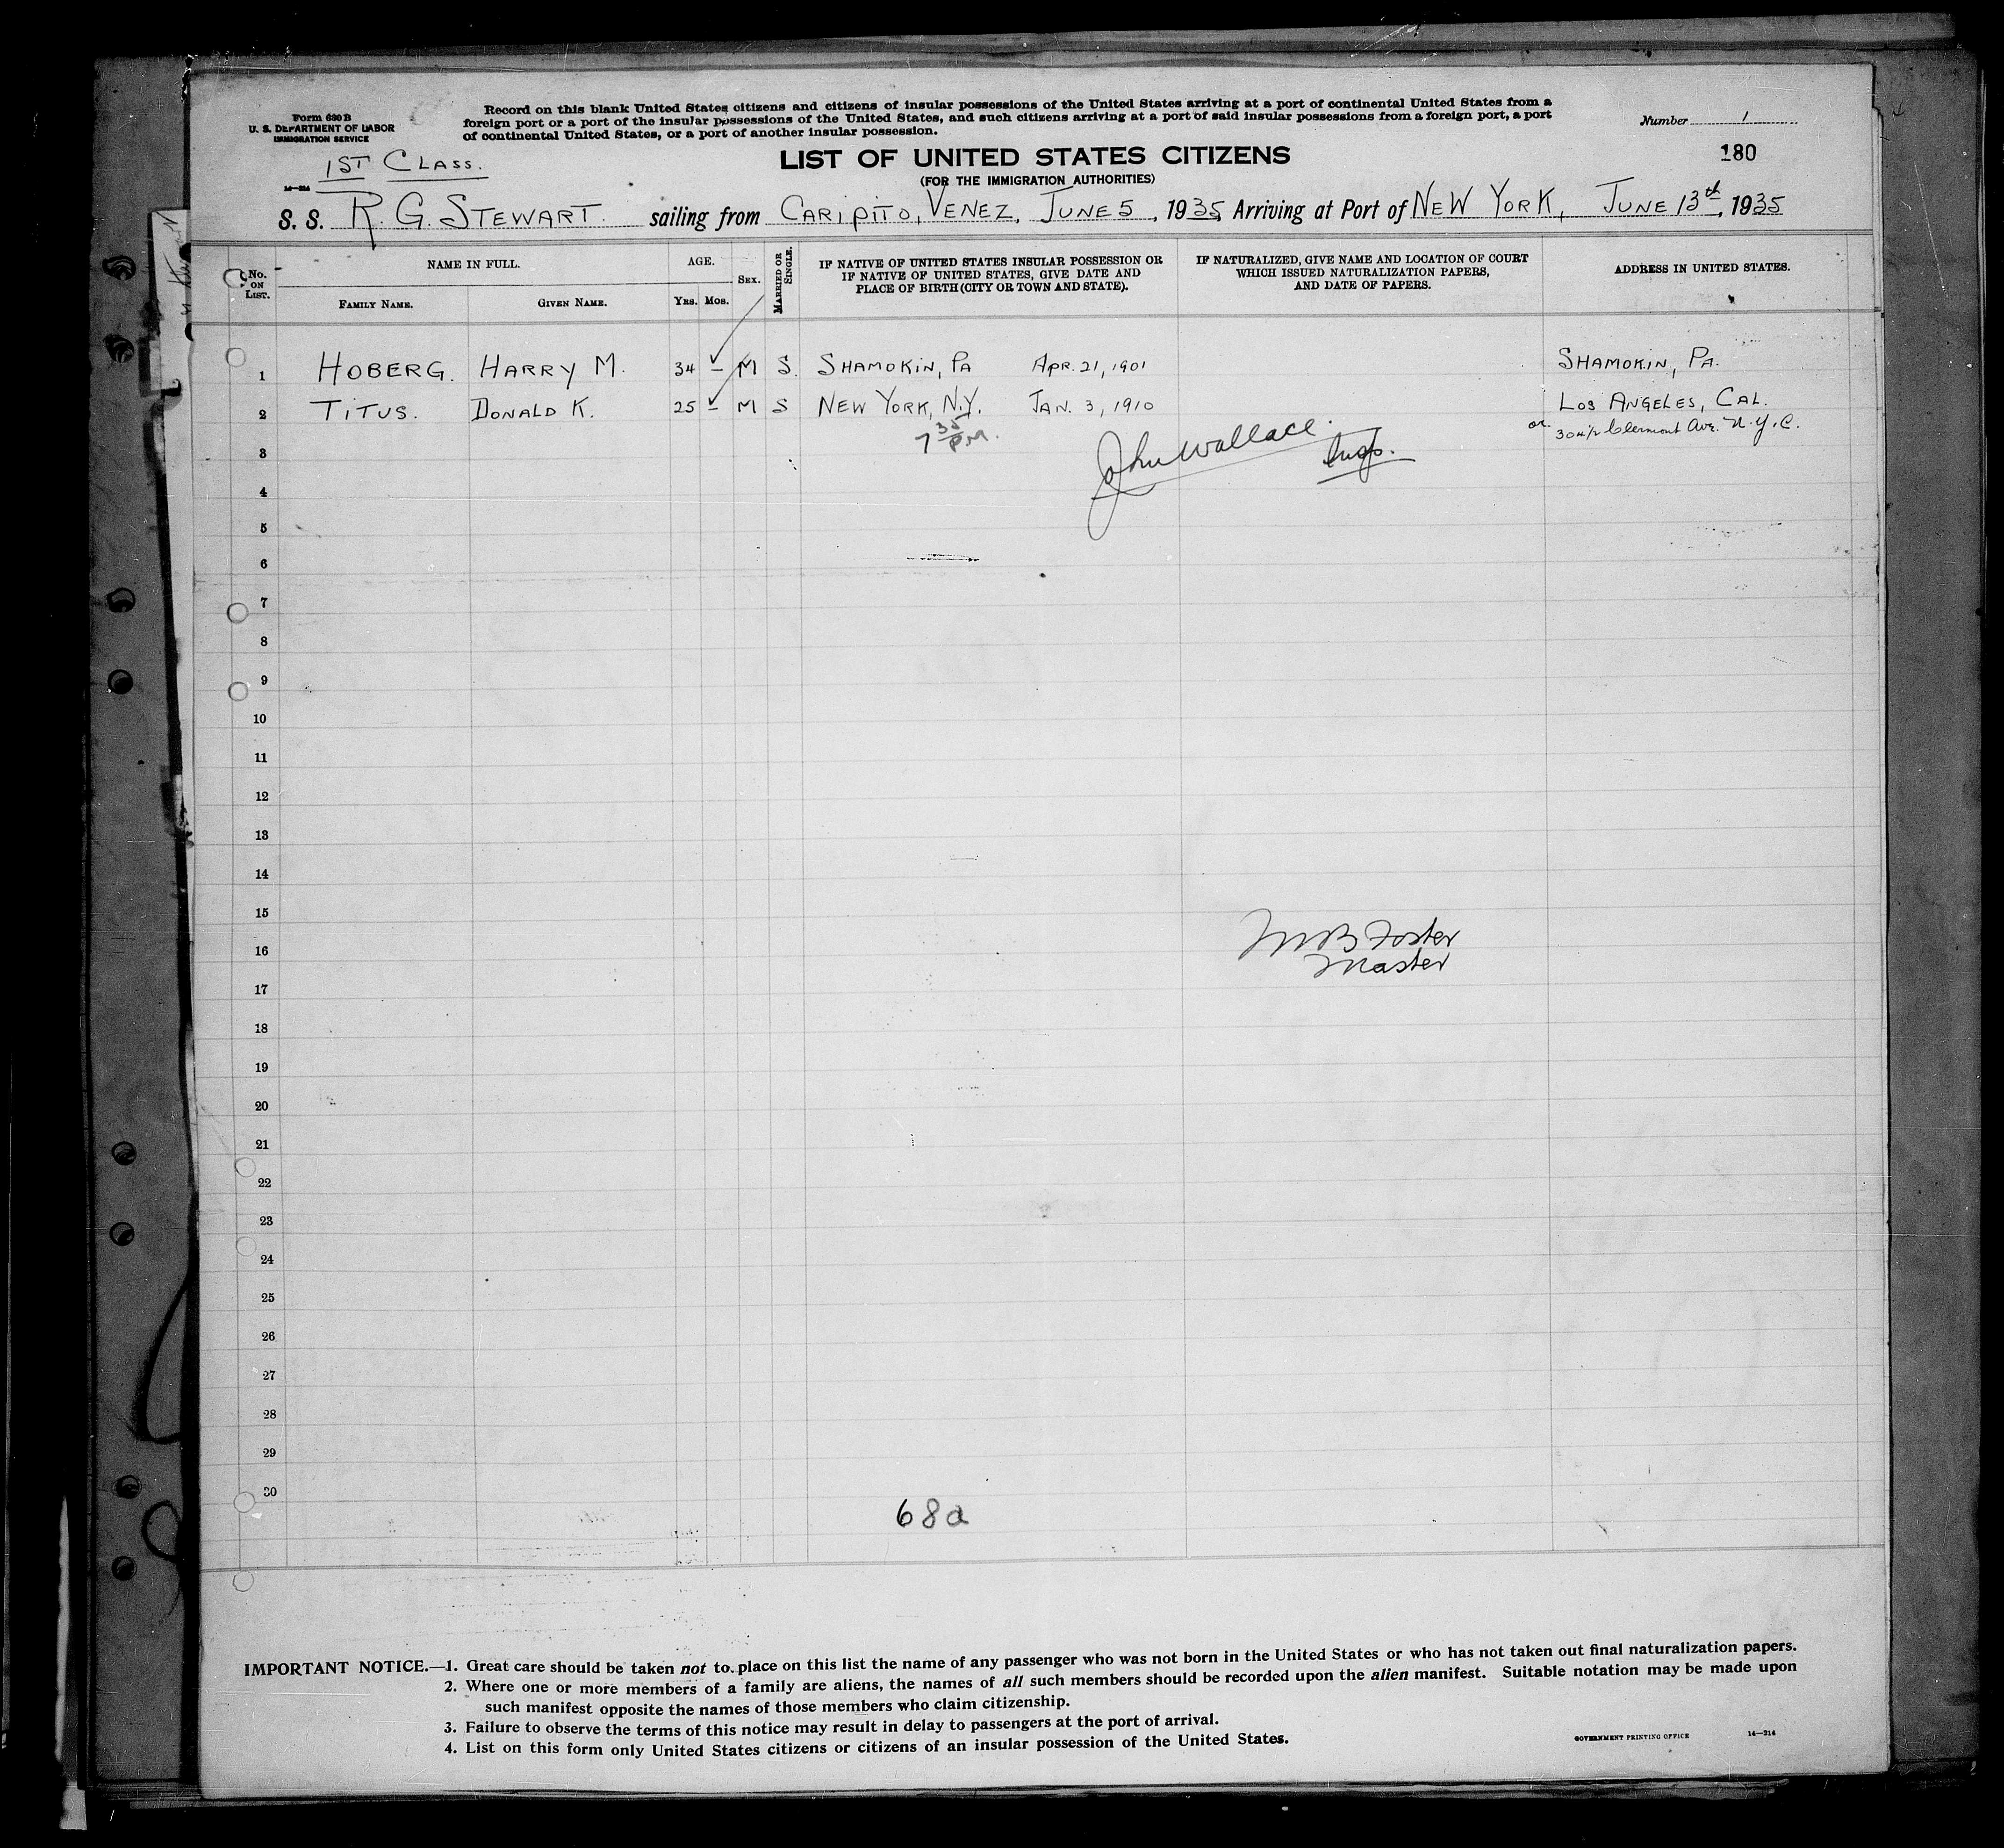 Form 630 B
U. S. DEPARTMENT OF LABOR
IMMIGRATION SERVICE
Record on this blank United States citizens and citizens of insular possessions of the United States arriving at a port of continental United States from a
foreign port or a port of the insular possessions of the United States, and such citizens arriving at a port of said insular possessions from a foreign port, a port
of continental United States, or a port of another insular possession.
Number 1
180
1ST CLASS.
LIST OF UNITED STATES CITIZENS
(FOR THE IMMIGRATION AUTHORITIES)
14—314
S. S. R. G. STEWART. sailing from CARIPITO, VENEZ, JUNE 5, 1935, Arriving at Port of NEW YORK, JUNE 13th, 1935
No. ON LIST.
NAME IN FULL.
FAMILY NAME.
GIVEN NAME.
AGE.
YRS. MOS.
SEX.
MARRIED OR SINGLE.
IF NATIVE OF UNITED STATES INSULAR POSSESSION OR
IF NATIVE OF UNITED STATES, GIVE DATE AND
PLACE OF BIRTH (CITY OR TOWN AND STATE).
IF NATURALIZED, GIVE NAME AND LOCATION OF COURT
WHICH ISSUED NATURALIZATION PAPERS,
AND DATE OF PAPERS.
ADDRESS IN UNITED STATES.
1 HOBERG. HARRY M. 34 – M S. SHAMOKIN, PA APR. 21, 1901 SHAMOKIN, PA.
2 TITUS. DONALD K. 25 – M S NEW YORK, N.Y. JAN. 3, 1910 LOS ANGELES, CAL.
or 304½ Clermont Ave. N.Y.C.
7 35 P.M.
John Wallace. Insp.
3
4
5
6
7
8
9
10
11
12
13
14
15
16
17
18
19
20
21
22
23
24
25
26
27
28
29
30
MB Foster
Master
68a
IMPORTANT NOTICE.—1. Great care should be taken not to place on this list the name of any passenger who was not born in the United States or who has not taken out final naturalization papers.
2. Where one or more members of a family are aliens, the names of all such members should be recorded upon the alien manifest. Suitable notation may be made upon
such manifest opposite the names of those members who claim citizenship.
3. Failure to observe the terms of this notice may result in delay to passengers at the port of arrival.
4. List on this form only United States citizens or citizens of an insular possession of the United States.
GOVERNMENT PRINTING OFFICE 14—314